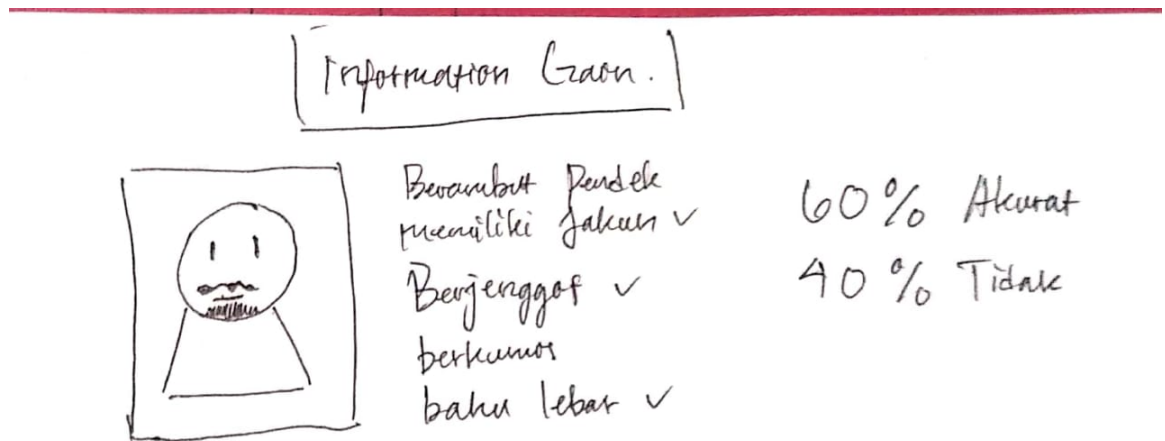 Information Gaon.
Berambut Pendek
memiliki Jakun ✓
Berjenggot ✓
berkumos
bahu lebar ✓
60% Akurat
40% Tidak